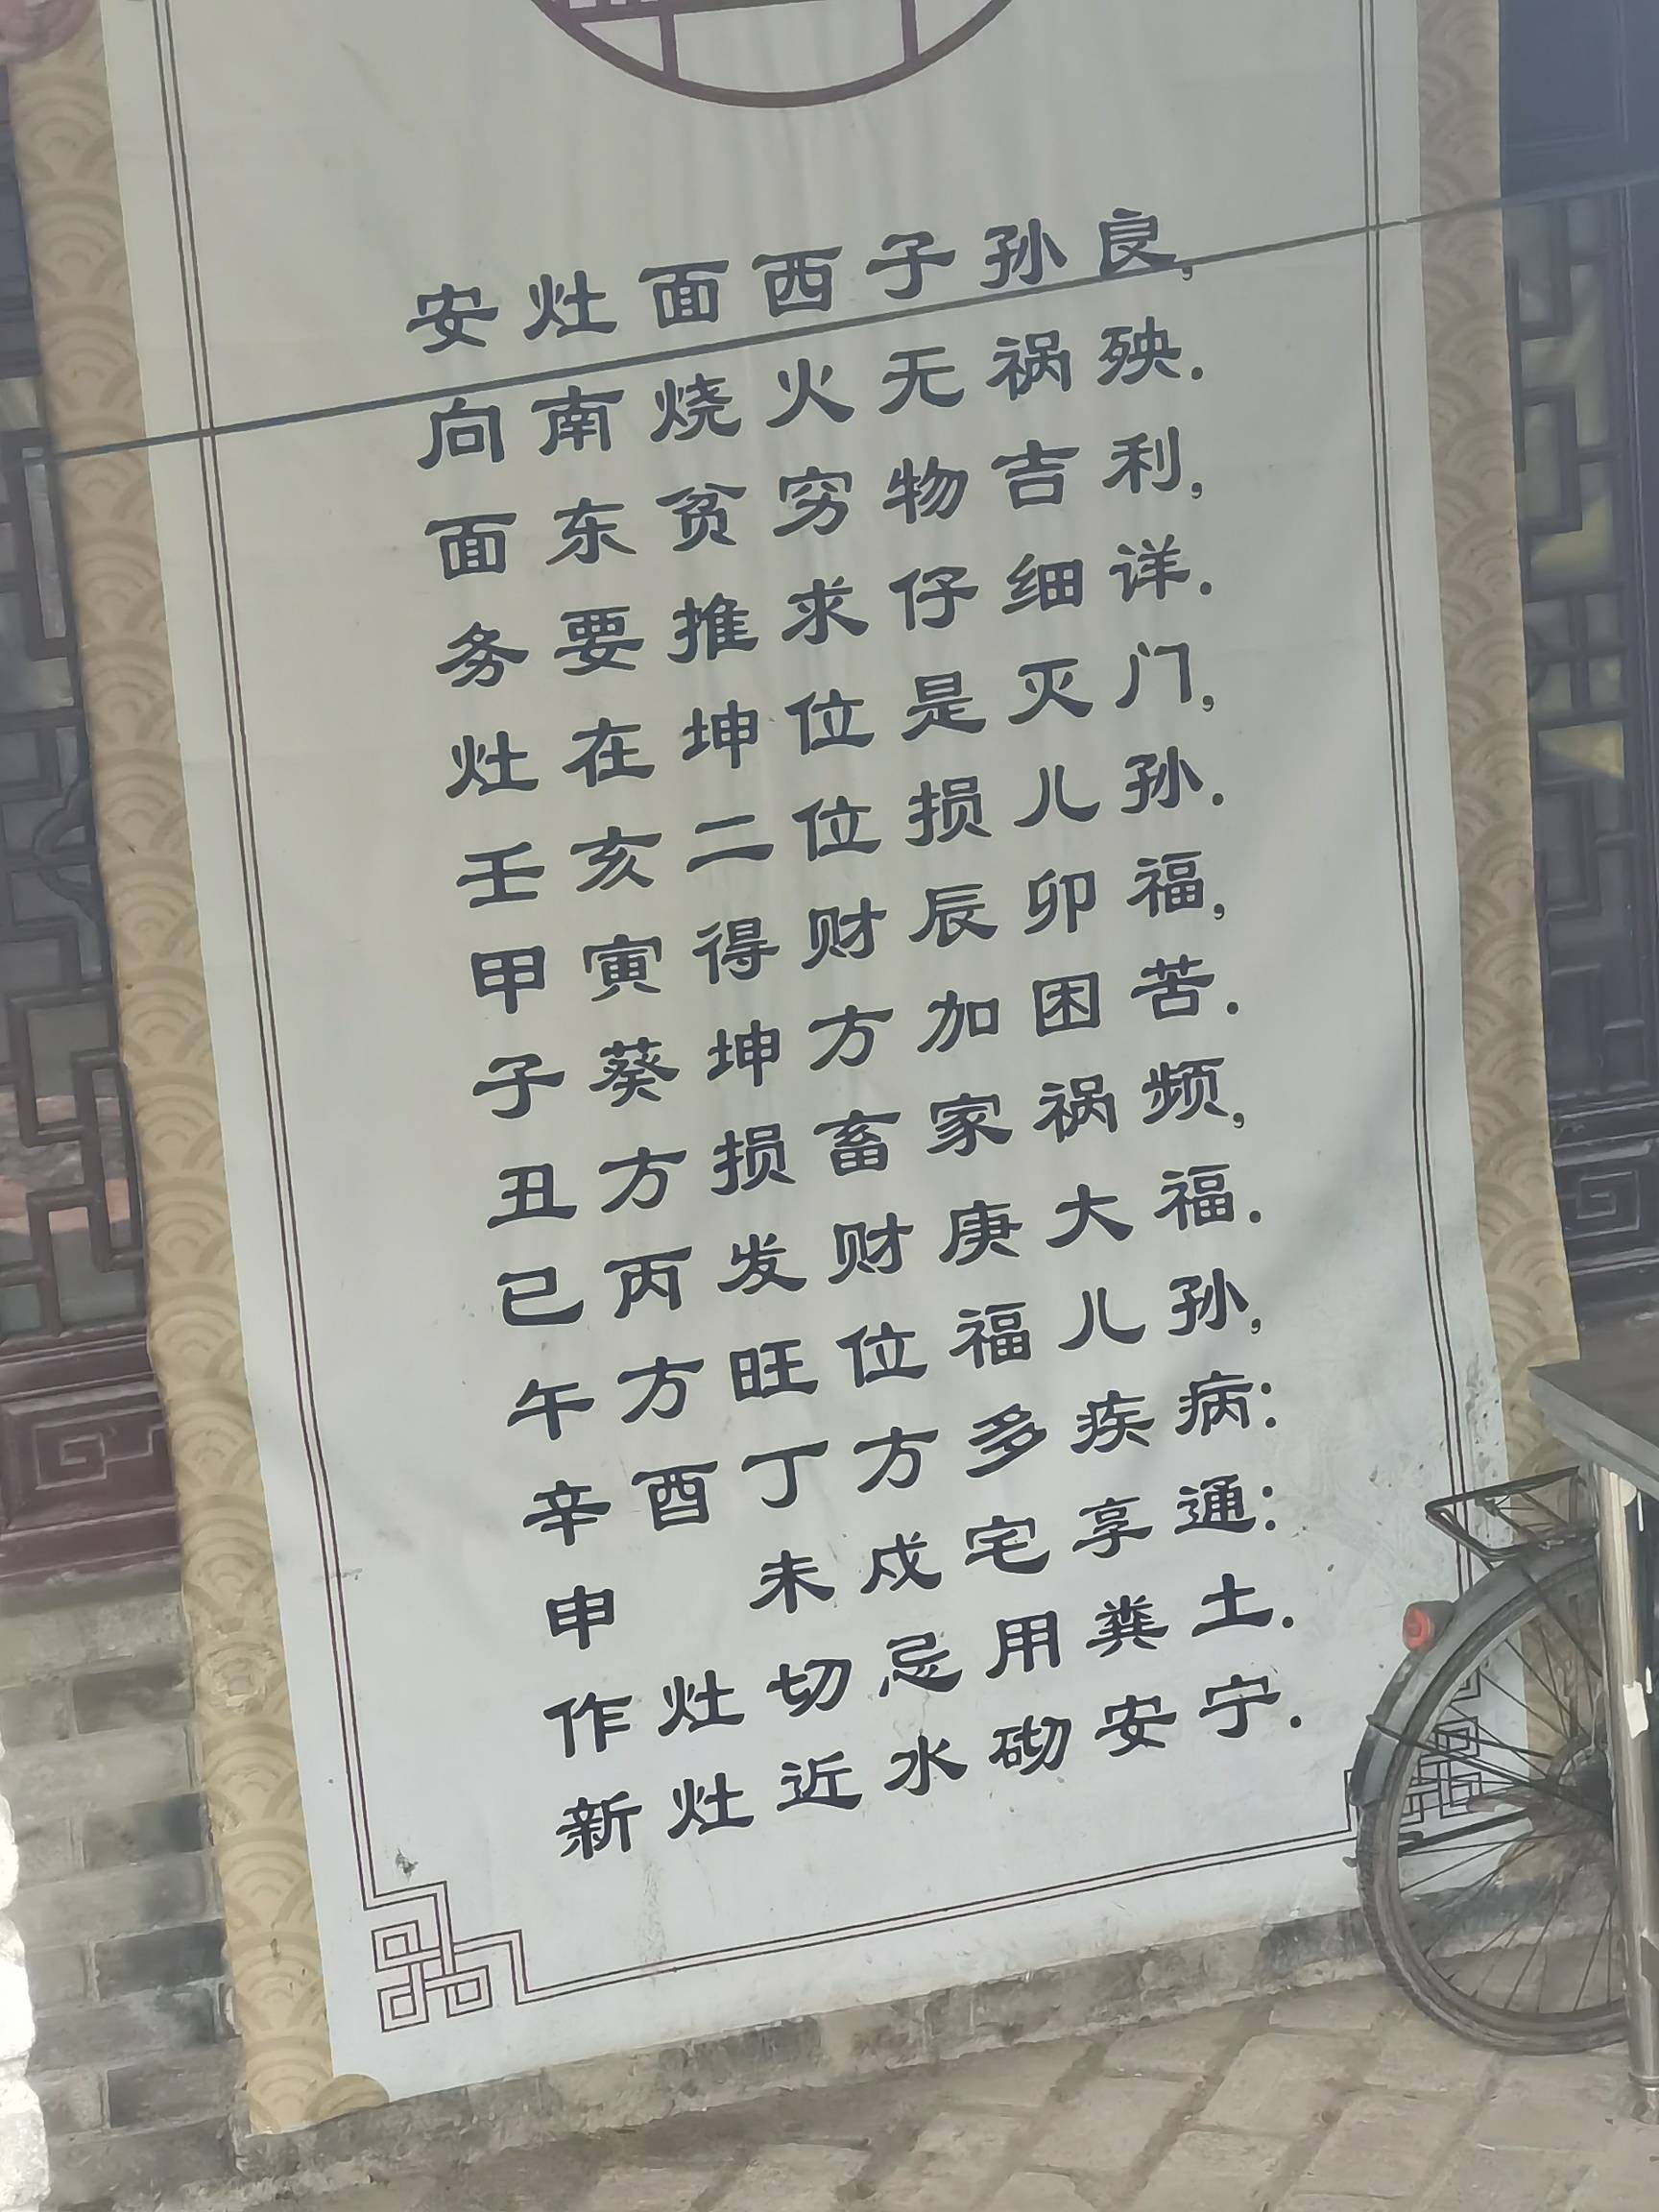 安灶面西子孙良,
向南烧火无祸殃.
面东贫穷物吉利,
务要推求仔细详.
灶在坤位是灭门,
壬亥二位损儿孙.
甲寅得财辰卯福,
子葵坤方加困苦.
丑方损畜家祸频,
已丙发财庚大福.
午方旺位福儿孙,
辛酉丁方多疾病:
申 未戍宅享通:
作灶切忌用粪土.
新灶近水砌安宁.